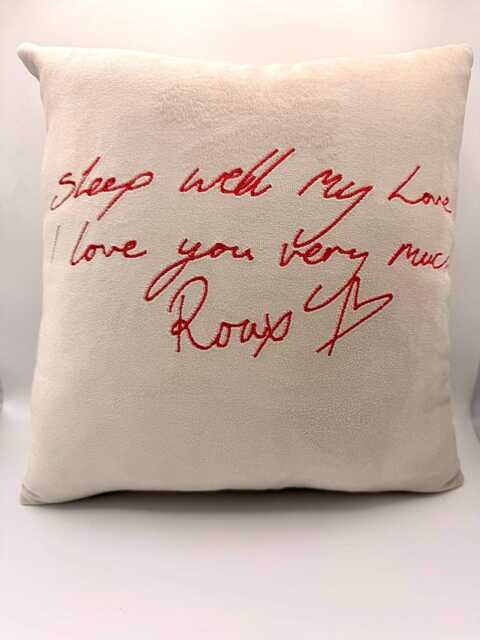 Sleep well my Love
I love you very much
Roux